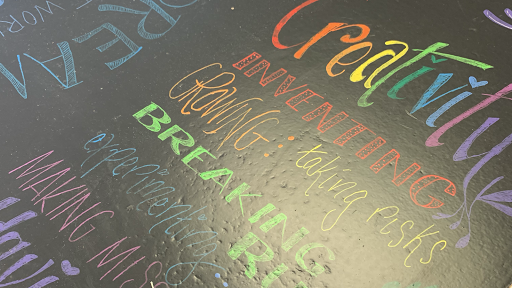 DREAM
WOR
Creativity
INVENTING
GROWING: taking risks
BREAKING
experimenting
MAKING MIS